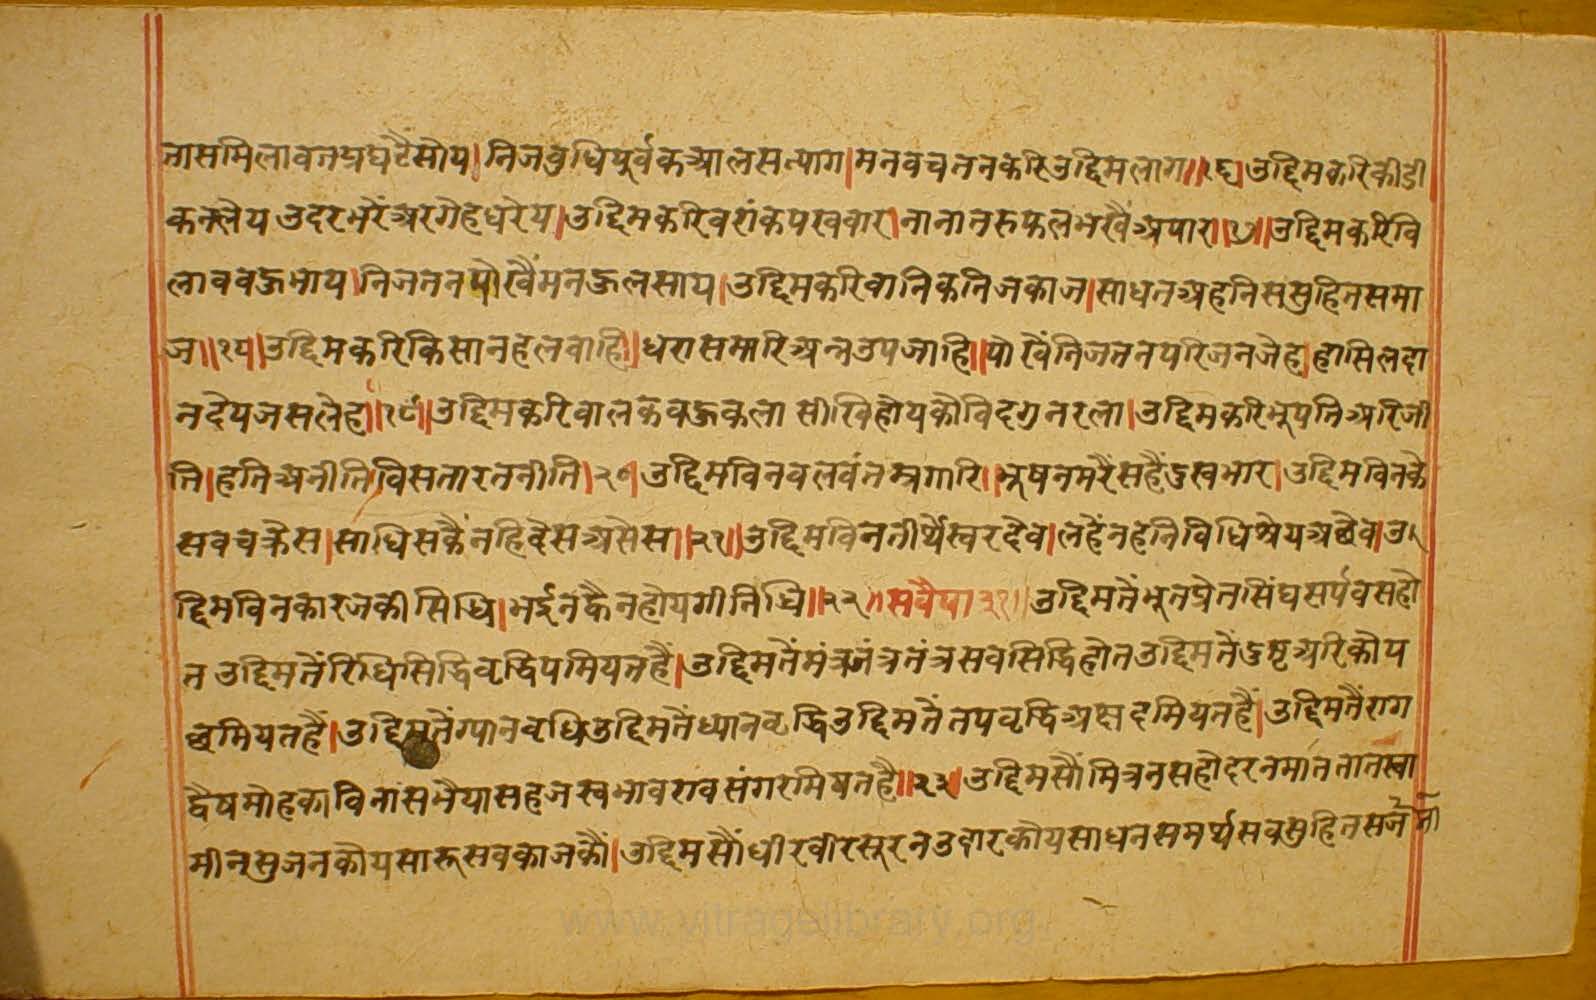 तासमिलावतप्रघटैसोय। निजबुधिपूर्वकआलसत्याग। मनवचतनकरिउद्दिमलाग॥१६॥ उद्दिमकरिकीडी
कनलेय उदरभरेंअरगेहधरेय। उद्दिमकरिवरांकपखवारा नानातरुफलभखैंअपार॥१७॥ उद्दिमकरिवि
लाववऊभाय। निजतनपोखैंमनऊलसाय। उद्दिमकरिवानिकनिजकाज। साधतअहनिससुहितसमा
ज॥१८॥ उद्दिमकरिकिसानहलवाहि। धरासमारिअन्नउपजाहि॥ पोखैंनिजतनपरिजनजेह। हासिलदा
नदेयजसलेह॥१९॥ उद्दिमकरिवालकवऊकला सीखिहोयकौविदगुनरला। उद्दिमकरिभूपतिअरिजी
ति। हनिअनीतिविसतारतनीति।२०। उद्दिमविनवलवंतम्रगारि। भूषनमरैंसहैंदुखभार। उद्दिमविनके
सवचक्रेस। साधिसकैंनहिदेसअसेस॥२१॥ उद्दिमविनतीर्थेस्वरदेव। लहेंनहेतिविधिश्रेयअछेव। उ
द्दिमविनकारजकीसिधि। भईनह्वैनहोयगीनिधि॥२२॥ सवैया३१॥ उद्दिमतेंभूतप्रेतसिंघसर्पवसहो
त उद्दिमतेंरिधिसिद्धिवृद्धिपमियतहैं। उद्दिमतेंमंत्रजंत्रतंत्रसवसिद्धिहोतउद्दिमतेंदुष्टअरिकौप
छमियतहैं। उद्दिमतेंग्यानवृधिउद्दिमतेंध्यानवृद्धिउद्दिमतेंतपवृद्धिअक्षदमियतहैं। उद्दिमतेंराग
द्वैषमोहकाविनांसभैयासहजस्वभावरावसंगरमियतहैं॥२३॥ उद्दिमसौंमित्रनसहोदरनमाततातस्वा
मीनसुजनकौयसारूसवकाजकौं। उद्दिमसौंधीरवीरसूरनउदारकौयसाधनसमर्थसवसुहितसजे
www.vitragelibrary.org